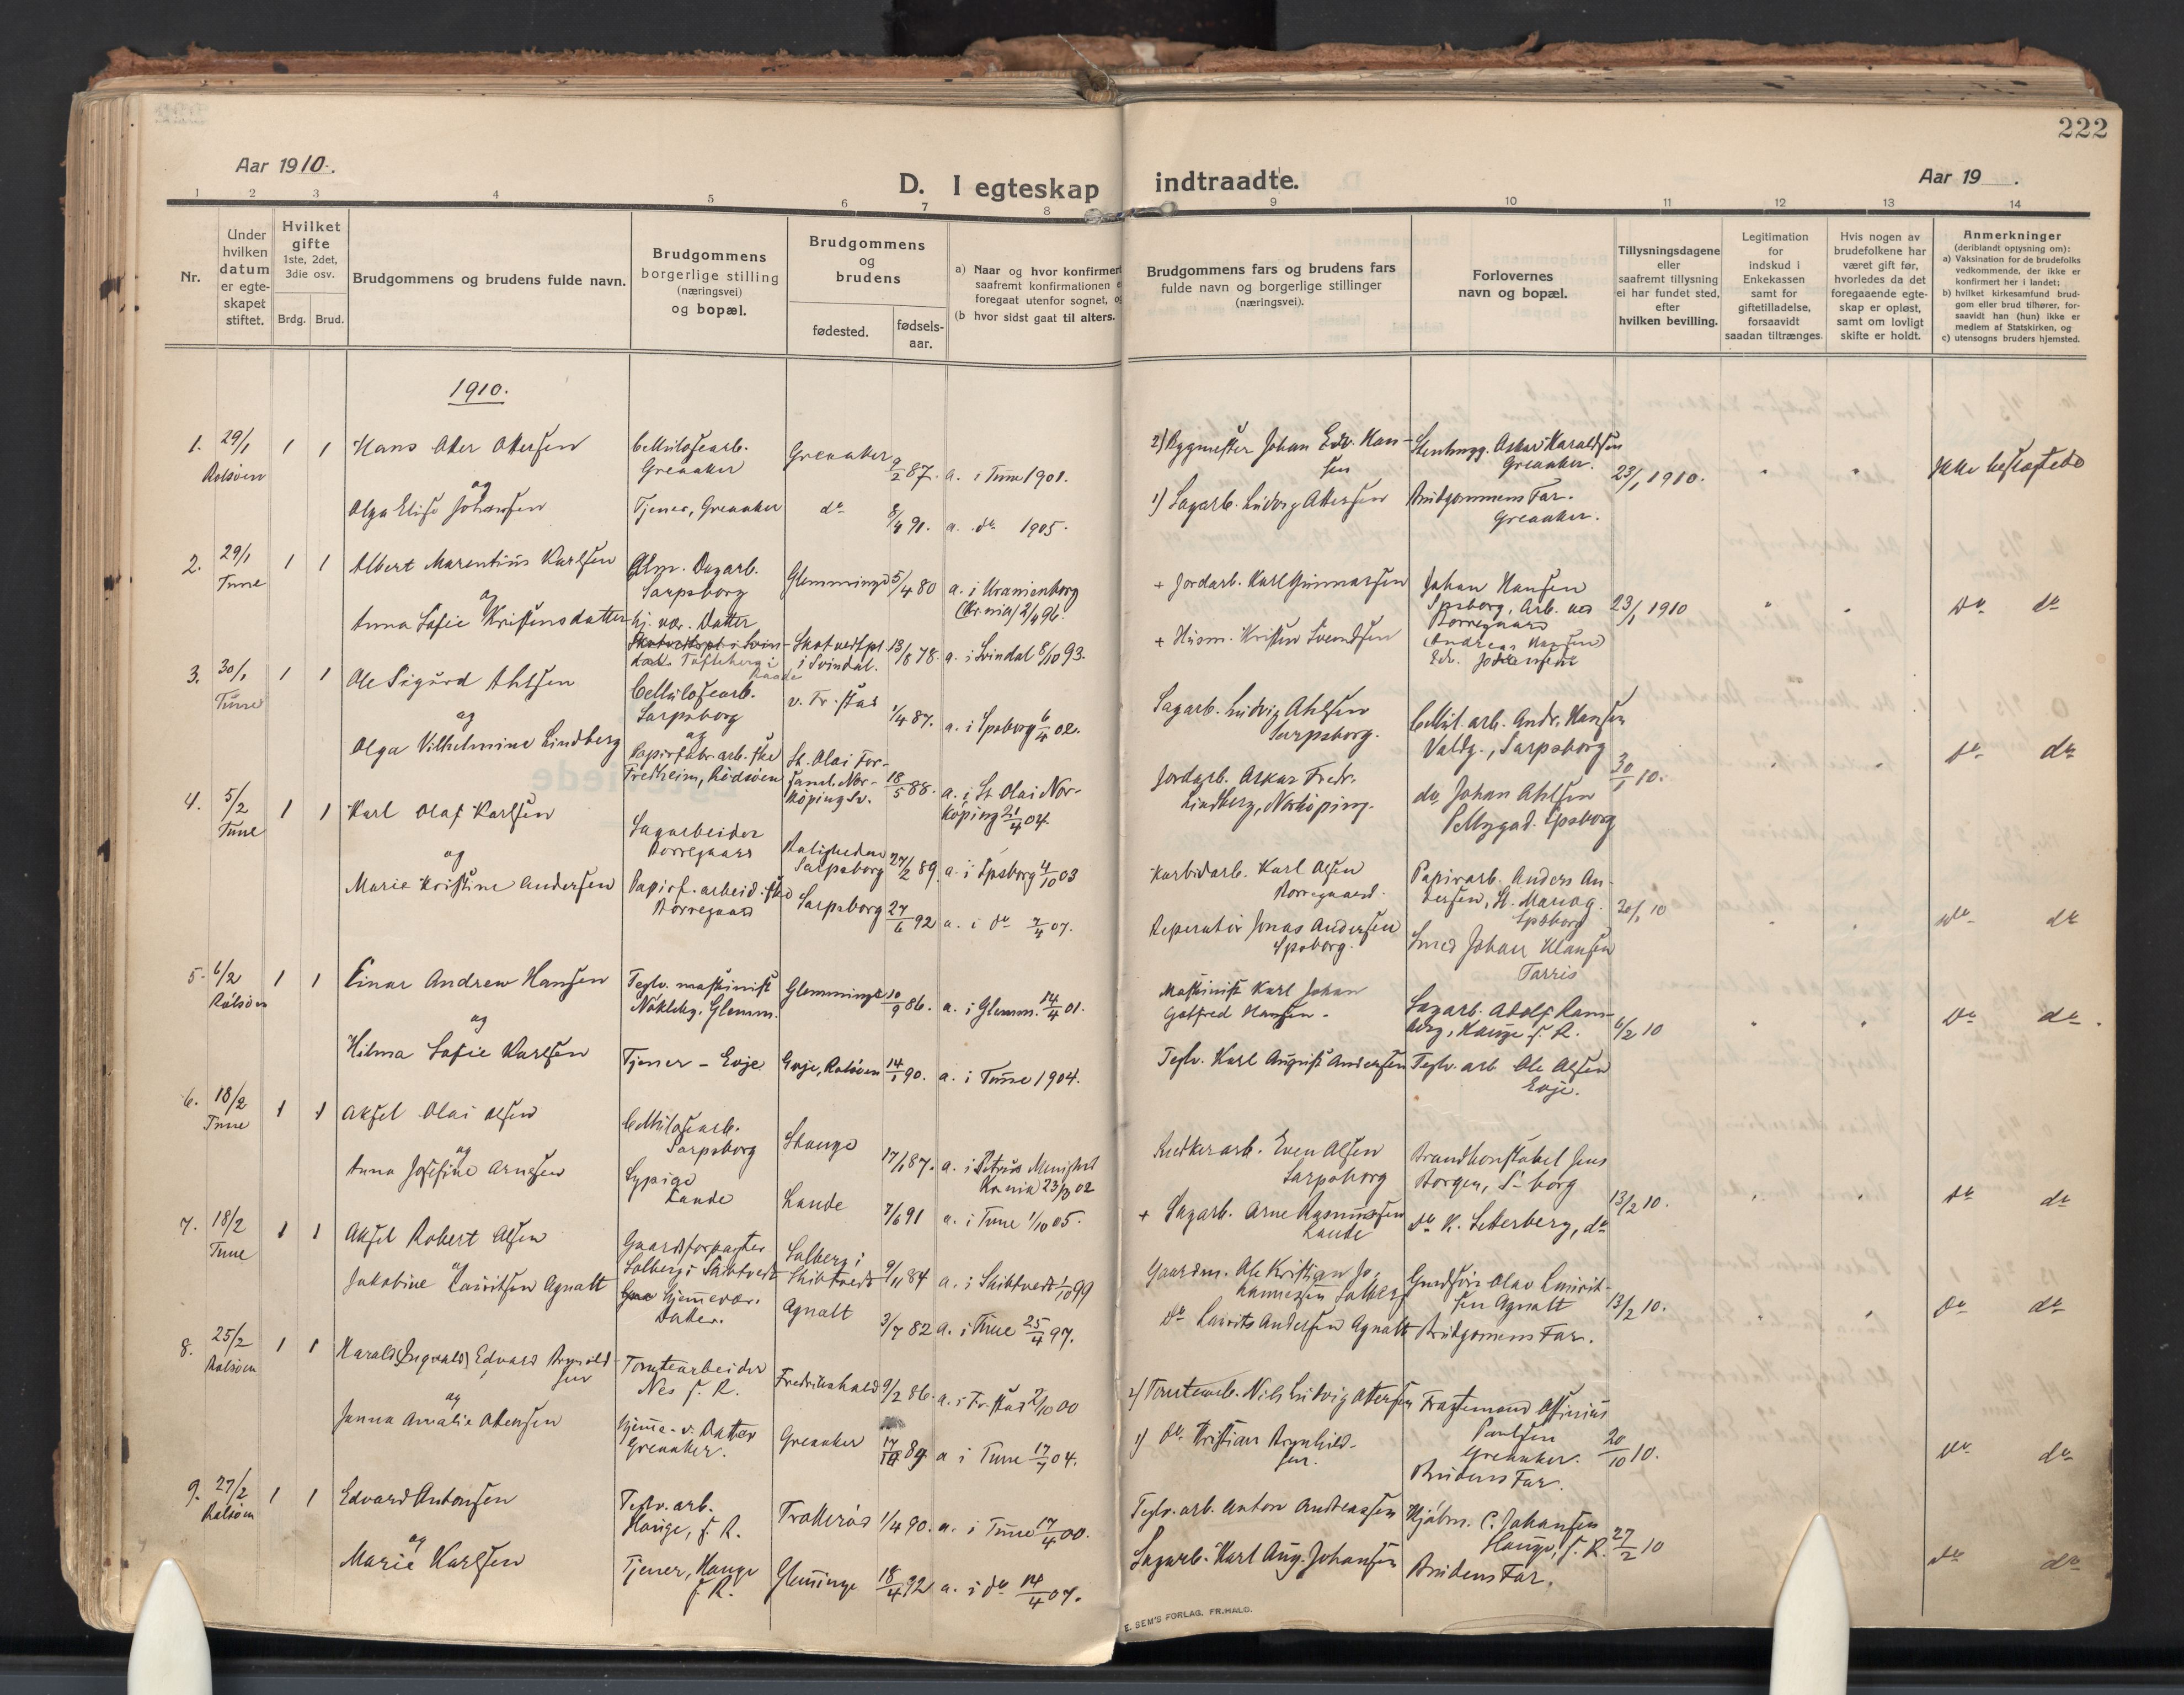 222
Aar 1910.
D. I egteskap indtraadte.
Aar 19 .
1 2 3 4 5 6 7 8 9 10 11 12 13 14
Nr.
Under hvilken datum er egteskapet stiftet.
Hvilket gifte 1ste, 2det, 3die osv.
Brdg. Brud.
Brudgommens og brudens fulde navn.
Brudgommens borgerlige stilling (næringsvei) og bopæl.
Brudgommens og brudens
fødested.
fødsels-aar.
a) Naar og hvor konfirmert
saafremt konfirmationen e
foregaat utenfor sognet, o
(b hvor sidst gaat til alters.
Brudgommens fars og brudens fars
fulde navn og borgerlige stillinger
(næringsvei).
Forlovernes
navn og bopæl.
Tillysningsdagene
eller
saafremt tillysning
ei har fundet sted,
efter
hvilken bevilling.
Legitimation
for
indskud i
Enkekassen
samt for
giftetilladelse,
forsaavidt
saadan tiltrænges.
Hvis nogen av
brudefolkene har
været gift før,
hvorledes da det
foregaaende egte-
skap er opløst,
samt om lovligt
skifte er holdt.
Anmerkninger
(deriblandt oplysning om):
a) Vaksination for de brudefolks
vedkommende, der ikke er
konfirmert her i landet;
b) hvilket kirkesamfund brud-
gom eller brud tilhører, for-
saavidt han (hun) ikke er
medlem af Statskirken, og
c) utensogns bruders hjemsted.
1910.
1. 29/1 Rolsøen 1 1 Hans Otter Ottersen
Cellulosearb. Greaaker
Greaaker 9/2 87. a. i Tune 1901.
2) Bygmester Johan Edv. Hansen
Stenhugg. Oskar Haraldsen Greaaker.
23/1 1910.
Ikke beslægtede
og
Olga Elise Johansen
Tjener, Greaaker do 8/4 91. a. do 1905.
1) Sagarb. Ludvig Ottersen
Brudgommens Far. Greaaker.
2. 29/1 Tune 1 1 Albert Marentius Karlsen
Alm. Dagarb. Sarpsborg
Glemminge 5/4 80 a. i Uranienborg (Kr.nia) 2/4 96.
+ Jordarb. Karl Gunnarsen
Johan Hansen Spsborg, Arb. ved Borregaard
23/1 1910
do do
og
Anna Sofie Kristensdatter
hj. vær. Datter
Tofteberg i Raade
Skotvedtpl. i Svindal. 13/8 78. a. i Svindal 8/10 93.
+ Husm. Kristen Svendsen
3. 30/1 Tune 1 1 Ole Sigurd Ahlsen
Cellulosearb. Sarpsborg
v. Fr.stad 1/4 87. a. i Spsborg 6/4 02.
Sagarb. Ludvig Ahlsen Sarpsborg.
Cellul. arb. Andr. Hansen Valdg., Sarpsborg
30/1 10.
do do
og
Olga Vilhelmine Lindberg
Papirfabr. arb.ske Fredheim, Rödsöen
St. Olai Forsaml. Norköping Sv. 18/5 88. a. i St Olai Norköping 21/4 04
Jordarb. Oskar Fredr. Lindberg, Norköping.
do Johan Ahlsen Pellygad. Spsborg
4. 5/2 Tune 1 1 Karl Olaf Karlsen
Sagarbeider Borregaard
Roligheden Sarpsborg 27/2 89. a. i Spsborg 4/10 03
Karbidarb. Karl Olsen Borregaard.
Papirarb. Anders Andersen, St. Marieg. Spsborg
30/1 10
do do
og
Marie Kristine Andersen
Papirf. arbeid.ske Borregaard
Sarpsborg 27/6 92 a. i do 7/4 07.
Reperatör Jonas Andersen Spsborg.
Smed Johan Klausen Tarris
5. 6/2 Rolsöen 1 1 Einar Andrew Hansen
Teglv. maskinist Nökleby, Glemm.
Glemminge 10/9 86. a. i Glemm. 14/4 01.
Maskinist Karl Johan Gotfred Hansen.
Sagarb. Adolf Ramberg, Hauge s. R.
6/2 10
do do.
og
Hilma Sofie Karlsen
Tjener - Evje Evje, Rolsöen 14/1 90. a. i Tune 1904.
Teglv. Karl August Andersen
Teglv. arb Ole Olsen Evje.
6. 18/2 Tune 1 1 Aksel Olai Olsen
Cellulosearb. Sarpsborg
Stange 17/1 87. a. i Petrus Menighed Kr.nia 23/3 02
Even Olsen Sarpsborg
Brandkonstabel Jens Borgen, S-borg
13/2 10.
do do
og
Anna Josefine Arnesen
Sypige Lande
Lande 7/6 91 a. i Tune 1/10 05.
+ Sagarb. Arne Rasmussen Lande
do K. Seterberg, do
7. 18/2 Tune 1 1 Aksel Robert Olsen
Gaardsforpagter Solberg i Skibtvedt
Solberg i Skibtvedt 9/11 84 a. i Skibtvedt 1/10 99
Gaardm. Ole Kristian Johannesen Solberg
Olav Lauritsen Agnalt
13/2 10.
do do
og
Jakobine Lauritsen Agnalt
Hjemmevær. Datter.
Agnalt 3/7 82 a. i Tune 25/4 97.
do Laurits Andersen Agnalt
Brudgommens Far.
8. 25/2 Rolsöen 1 1 Harald (Ingvald) Edvard Brynildsen
Tomtearbeider Nes s. R.
Fredrikshald 9/2 86. a. i Fr.stad 2/10 00
2) Tomtearb. Nils Ludvig Ottersen
Fragtemand Paulsen Greaaker.
20/10 10.
do do
og
Janna Amalie Ottersen
Hjemme-v. Datter Greaaker.
Greaaker 89 a i Tune 17/7 04.
1) do Kristian Brynhildsen.
Brudens Far.
9. 27/2 Rolsöen 1 1 Edvard Antonsen
Teglv. arb. Hauge, s. R.
Trolleröd 1/4 90. a. i Tune 17/4 00.
Teglv. arb. Anton Andreassen
C. Johansen Hauge, s. R.
27/2 10
do do
og
Marie Karlsen
Tjener, Hauge s. R.
Glemminge 18/4 92 a. i do 14/4 07.
Sagarb. Karl Aug. Johansen
Brudens Far.
E. SEM'S FORLAG, FR.HALD.